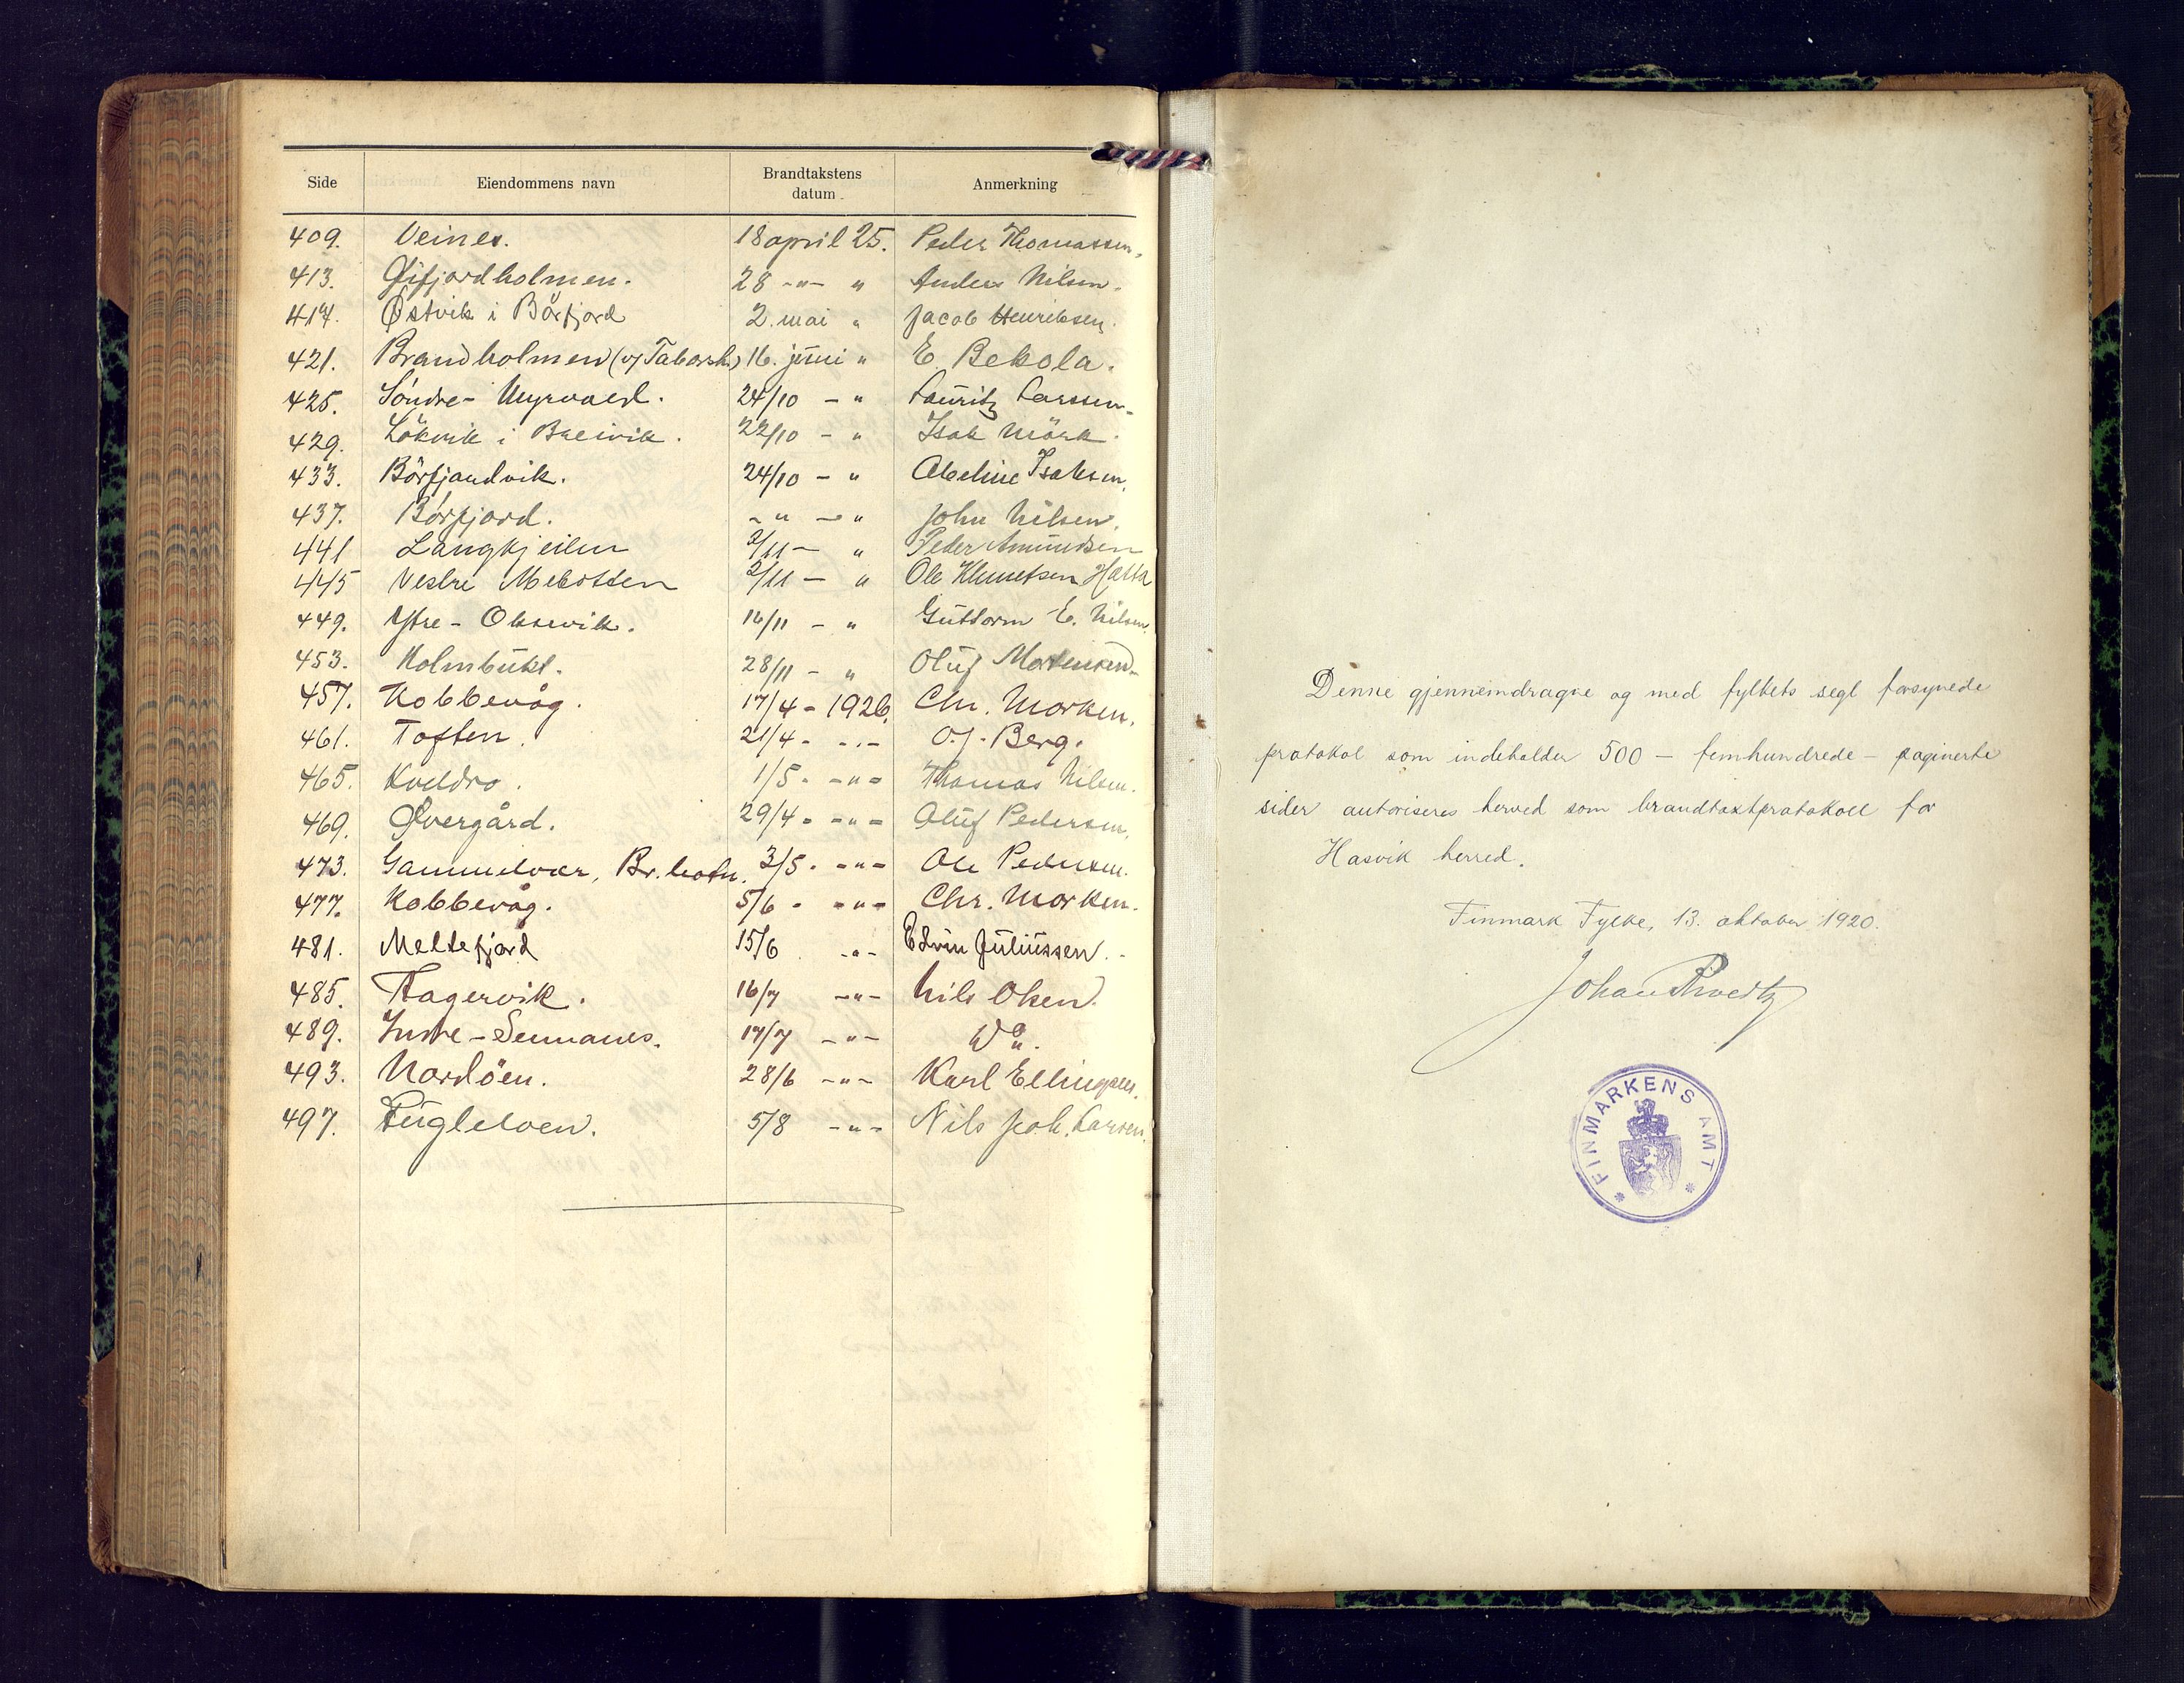 Side Eiendommens navn Brandtakstens datum Anmerkning
409. Veines. 18 april 25. Peder Thomassen.
413. Öifjordholmen. 28 -"- " Anders Nilsen.
417. Østvik i Börfjord 2. mai " Jacob Henriksen.
421. Brandholmen (v/ Taborsk.) 16. juni " E. Bekola.
425. Söndre- Myrvold. 24/10 - " Lauritz Larssen.
429. Lökvik i Breivik. 22/10 - " Isak Mörk.
433. Börfjordvik. 24/10 - " Abeline Isaksen.
437. Börfjord. -"- " John Nilsen.
441 Langkjeilen 2/11 - " Peder Amundsen
445 Vestre Mebotten 2/11 - " Ole Klemetsen Hætta
449. Ytre - Oksevik. 16/11 - " Guttorm E. Nilsen.
453. Holmbukt. 28/11 - " Oluf Mortensen.
457. Kobbevåg. 17/4 - 1926. Chr. Morken.
461. Toften. 21/4 - -"- O. J. Berg.
465. Kveldro. 1/5 - -"- Thomas Nilsen.
469. Øvergård. 29/4 - -"- Oluf Pedersen.
473. Gammelvær, Br. botn. 3/5 - -"- Ole Pedersen.
477. Kobbevåg. 5/6 - -"- Chr. Morken.
481. Meltefjord 15/6 -"- Edvin Juliussen.
485. Hagervik. 16/7 -"- Nils Olsen.
489. Indre - 17/7 -"- Do.
493. Nordöen. 28/6 -"- Karl Ellingsen.
497. Fugleloen. 5/8 -"- Nils Joh. Larsen.
Denne gjennemdragne og med fylkets segl forsynede
protokol som indeholder 500 - femhundrede - paginerte
sider autoriseres herved som brandtaxtprotokoll for
Hasvik herred.
Finmark Fylke, 13. oktober 1920.
Johan Rivertz
FINMARKENS AMT